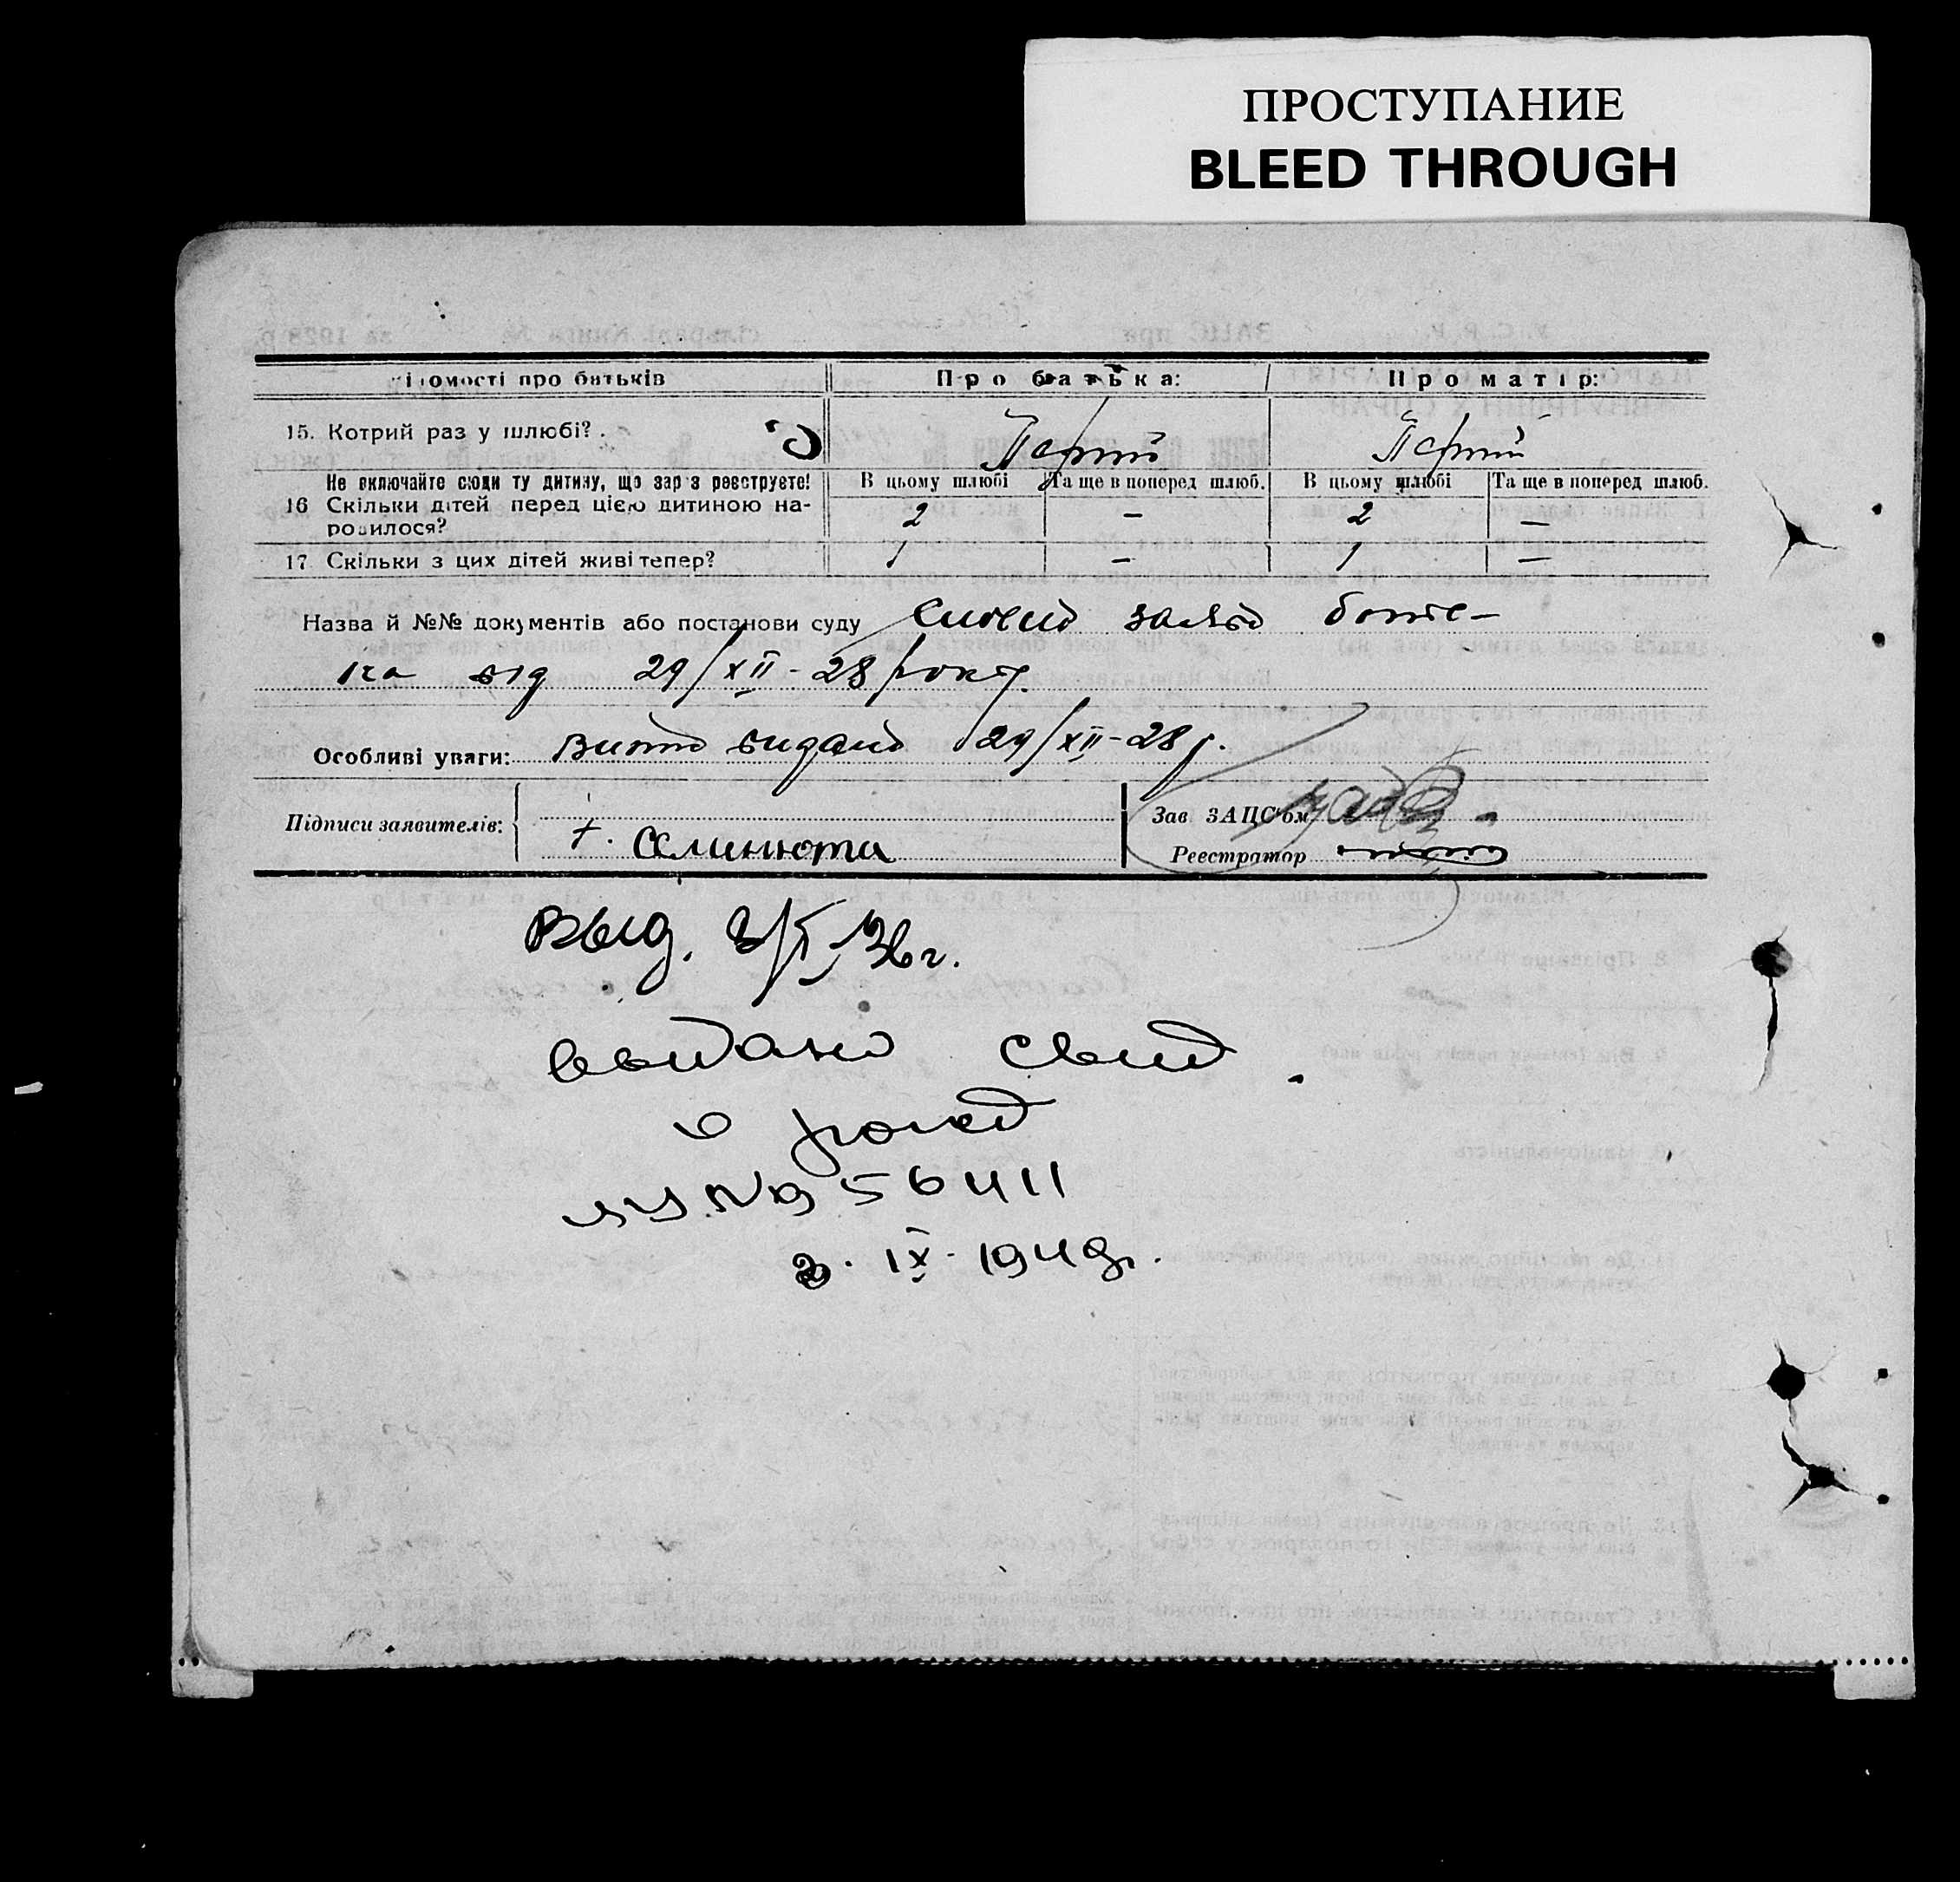 ПРОСТУПАНИЕ
BLEED THROUGH
ідомості про батьків Про батька: Про матір:
15. Котрий раз у шлюбі? Перший Перший
Не включайте сюди ту дитину, що зараз реєструєте! В цьому шлюбі Та ще в поперед шлюб. В цьому шлюбі Та ще в поперед шлюб.
16 Скільки дітей перед цією дитиною на-
родилося? 2 — 2 —
17 Скільки з цих дітей живі тепер? 1 — 1 —
Назва й №№ документів або постанови суду заява бать-
ка від 29/XII-28 року.
Особливі уваги: видано 29/XII-28 р.
Підписи заявителів: Зав ЗАЦС'ом
+. Семинюта Реєстратор
Выд. 3/I-36 г.
выдано свид.
о рожд
№ 56411
IX-1949г.